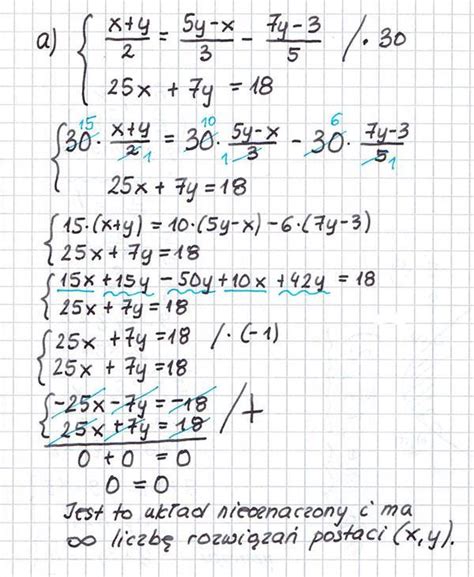 a) { (x+y)/2 = (5y-x)/3 - (7y-3)/5 /·30
25x + 7y = 18
{ 30 15 · (x+y)/2 1 = 30 10 · (5y-x)/3 1 - 30 6 · (7y-3)/5 1
25x + 7y = 18
{ 15·(x+y) = 10·(5y-x) - 6·(7y-3)
25x + 7y = 18
{ 15x + 15y - 50y + 10x + 42y = 18
25x + 7y = 18
{ 25x + 7y = 18 /·(-1)
25x + 7y = 18
{ -25x - 7y = -18 /+
25x + 7y = 18
0 + 0 = 0
0 = 0
Jest to układ nieoznaczony i ma
∞ liczbę rozwiązań postaci (x,y).